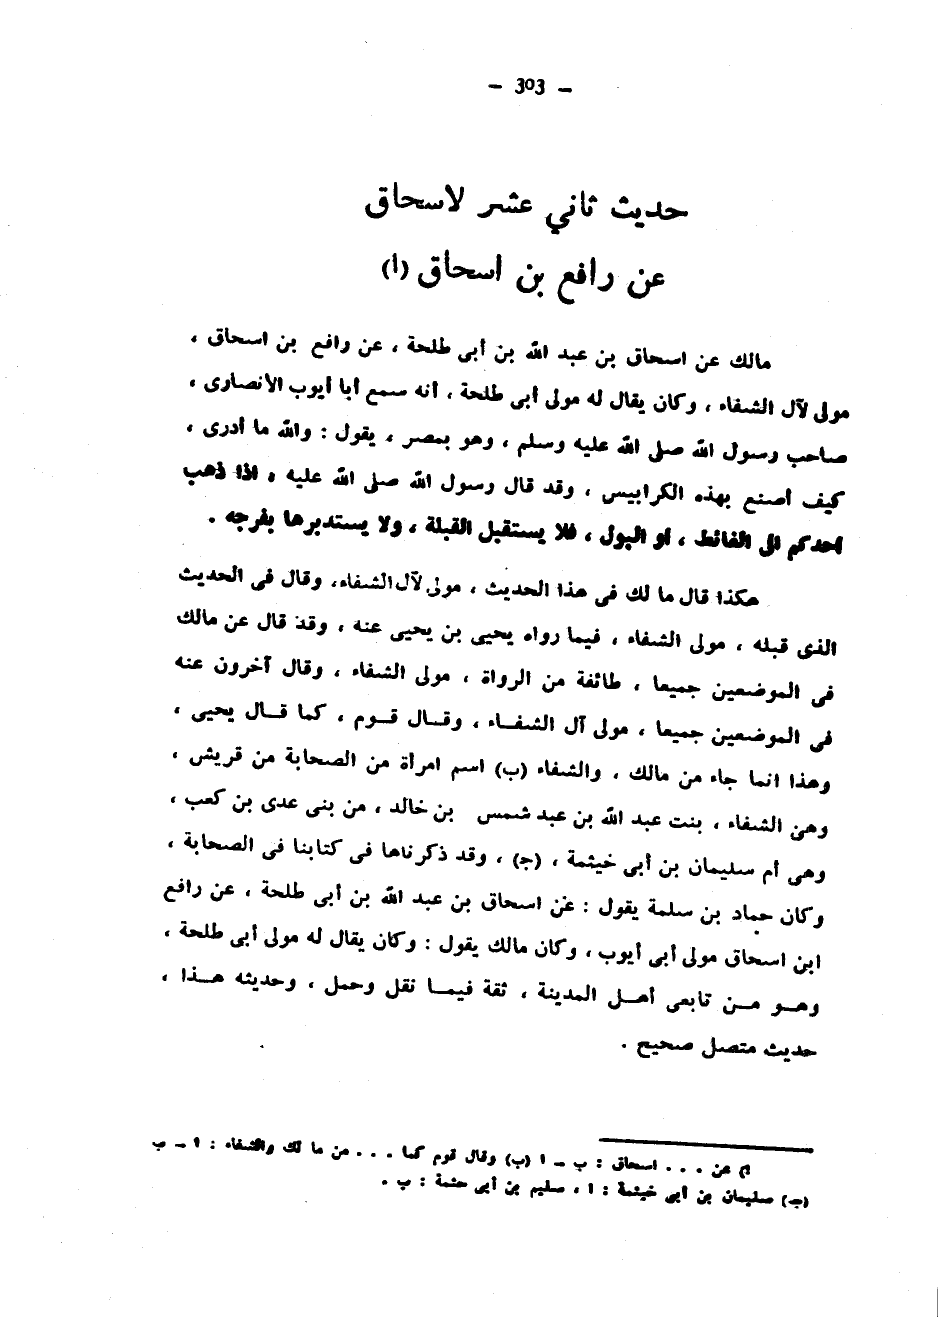 — 303 —
حديث ثاني عشر لاسحاق
عن رافع بن اسحاق (ا)
مالك عن اسحاق بن عبد الله بن أبى طلحة ، عن رافع بن اسحاق ،
مولى لآل الشفاء ، وكان يقال له مولى أبى طلحة ، أنه سمع أبا أيوب الأنصارى ،
صاحب رسول الله صلى الله عليه وسلم ، وهو بمصر ، يقول : والله ما أدرى ،
كيف أصنع بهذه الكرابيس ، وقد قال رسول الله صلى الله عليه ، اذا ذهب
احدكم الى الغائط ، او البول ، فلا يستقبل القبلة ، ولا يستدبرها بفرجه .
هكذا قال ما لك فى هذا الحديث ، مولى لآل الشفاء، وقال فى الحديث
الذى قبله ، مولى الشفاء ، فيما رواه يحيى بن يحيى عنه ، وقد قال عن مالك
فى الموضعين جميعا ، طائفة من الرواة ، مولى الشفاء ، وقال آخرون عنه
فى الموضعين جميعا ، مولى آل الشفـاء ، وقـال قـوم ، كما قـال يحيى ،
وهذا انما جاء من مالك ، والشفاء (ب) اسم امرأة من الصحابة من قريش ،
وهى الشفاء ، بنت عبد الله بن عبد شمس بن خالد ، من بنى عدى بن كعب ،
وهى أم سليمان بن أبى خيثمة ، (ج) ، وقد ذكرناها فى كتابنا فى الصحابة ،
وكان حماد بن سلمة يقول : عن اسحاق بن عبد الله بن أبى طلحة ، عن رافع
ابن اسحاق مولى أبى أيوب ، وكان مالك يقول : وكان يقال له مولى أبى طلحة ،
وهـو مـن تابعى أهـل المدينة ، ثقة فيمـا نقل وحمل ، وحديثه هـذا ،
حديث متصل صحيح .
عن . . . اسحاق : ب ـ ا (ب) وقال قوم كما . . . من ما لك والشفاء : ا ـ ب
(جـ) سليمان بن أبى خيثمة : ا ، سليم بن أبى حثمة : ب .